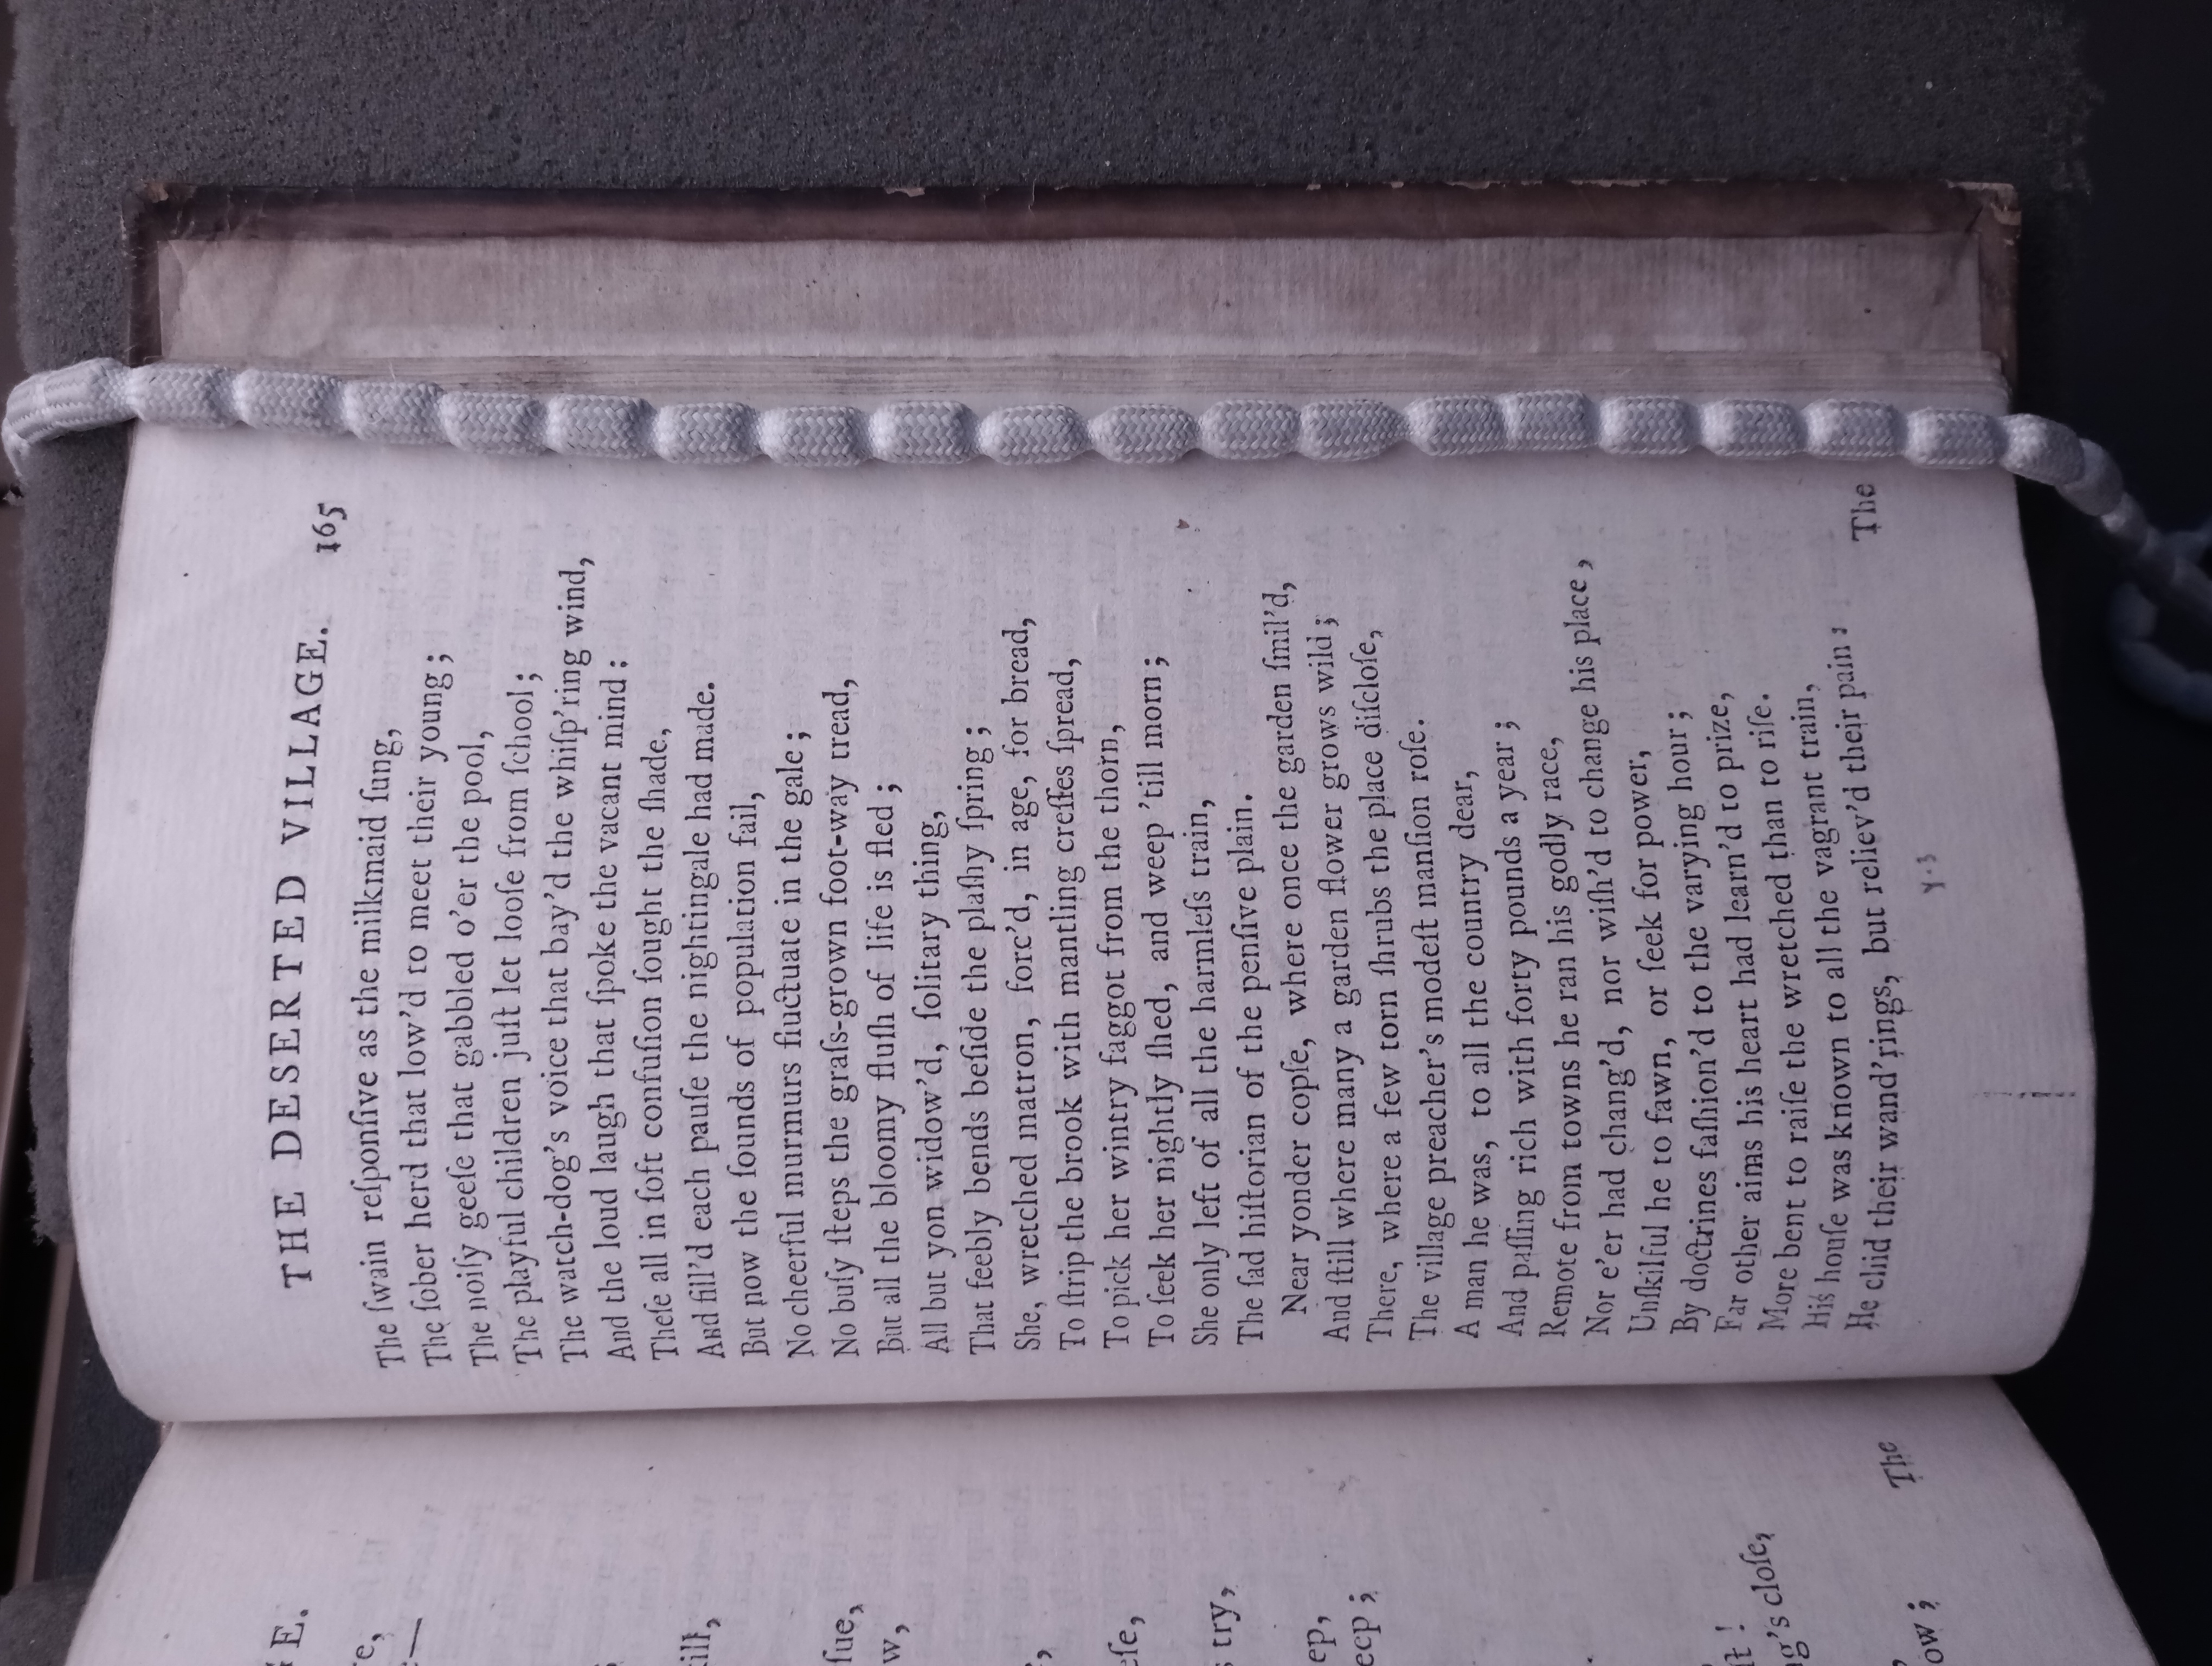 GE.
e,
—
till,
ſue,
w,
eſe,
try,
ep,
eep;
ſt!
ng's cloſe,
ow;
The
THE DESERTED VILLAGE. 165
The ſwain reſponſive as the milkmaid ſung,
The ſober herd that low'd to meet their young;
The noiſy geeſe that gabbled o'er the pool,
The playful children juſt let looſe from ſchool;
The watch-dog's voice that bay'd the whiſp'ring wind,
And the loud laugh that ſpoke the vacant mind:
Theſe all in ſoft confuſion ſought the ſhade,
And fill'd each pauſe the nightingale had made.
But now the ſounds of population fail,
No cheerful murmurs fluctuate in the gale;
No buſy ſteps the graſs-grown foot-way tread,
But all the bloomy fluſh of life is fled;
All but yon widow'd, ſolitary thing,
That feebly bends beſide the plaſhy ſpring;
She, wretched matron, forc'd, in age, for bread,
To ſtrip the brook with mantling creſſes ſpread,
To pick her wintry faggot from the thorn,
To ſeek her nightly ſhed, and weep 'till morn;
She only left of all the harmleſs train,
The ſad hiſtorian of the penſive plain.
Near yonder copſe, where once the garden ſmil'd,
And ſtill where many a garden flower grows wild;
There, where a few torn ſhrubs the place diſcloſe,
The village preacher's modeſt manſion roſe.
A man he was, to all the country dear,
And paſſing rich with forty pounds a year;
Remote from towns he ran his godly race,
Nor e'er had chang'd, nor wiſh'd to change his place,
Unſkilful he to fawn, or ſeek for power,
By doctrines faſhion'd to the varying hour;
Far other aims his heart had learn'd to prize,
More bent to raiſe the wretched than to riſe.
His houſe was known to all the vagrant train,
He chid their wand'rings, but reliev'd their pain:
Y 3
The